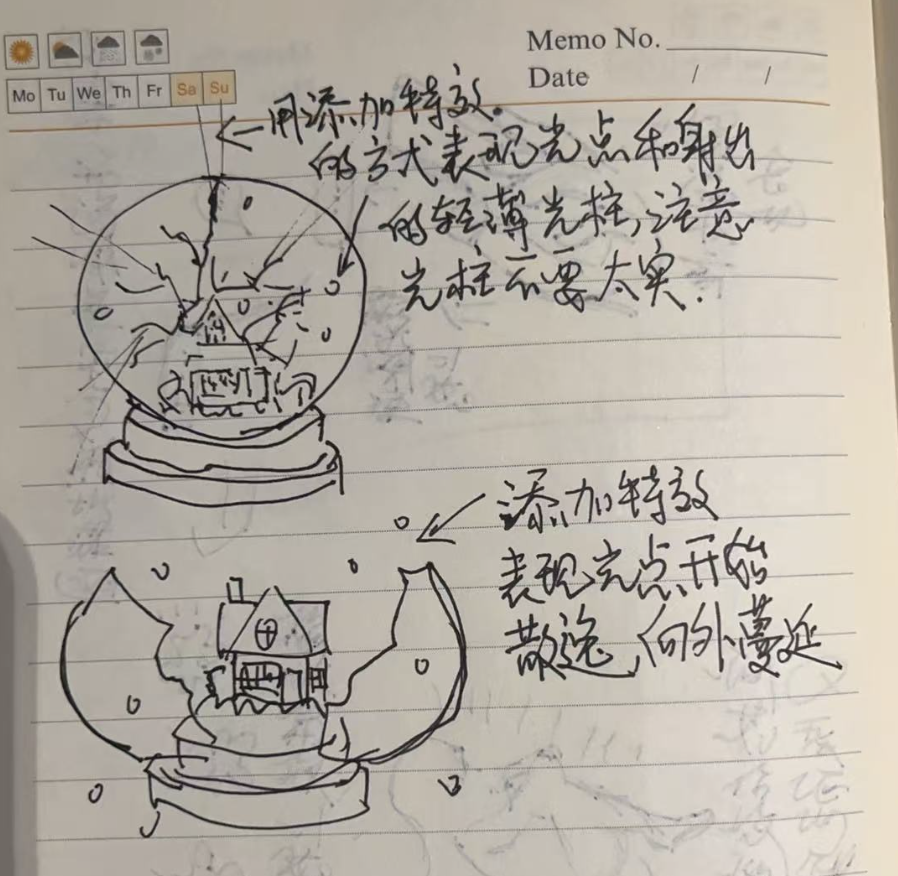 Memo No.
Date / /
Mo Tu We Th Fr Sa Su
←用添加特效.
的方式表现光点和射出
的轻薄光柱,注意
光柱不要太实.
添加特效
表现光点开始
散逸,向外蔓延